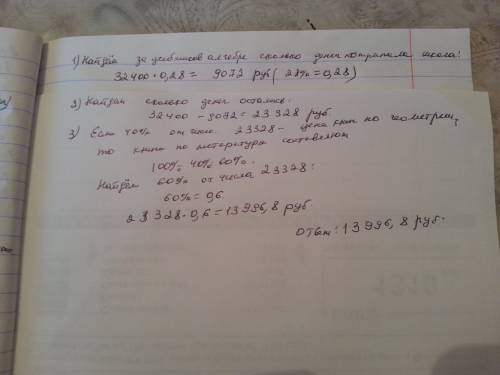 1) Найдём за учебников алгебре сколько денег потратила школа!
32400 · 0,28 = 9072 руб (28% = 0,28)
2) Найдём сколько денег осталось.
32400 - 9072 = 23328 руб.
3) Если 40% от числа 23328 - цена книг по геометрии,
то книга по литература составляют
100% - 40% = 60%.
Найдём 60% от числа 23328:
60% = 0,6.
23328 · 0,6 = 13996,8 руб.
Ответ: 13996,8 руб.